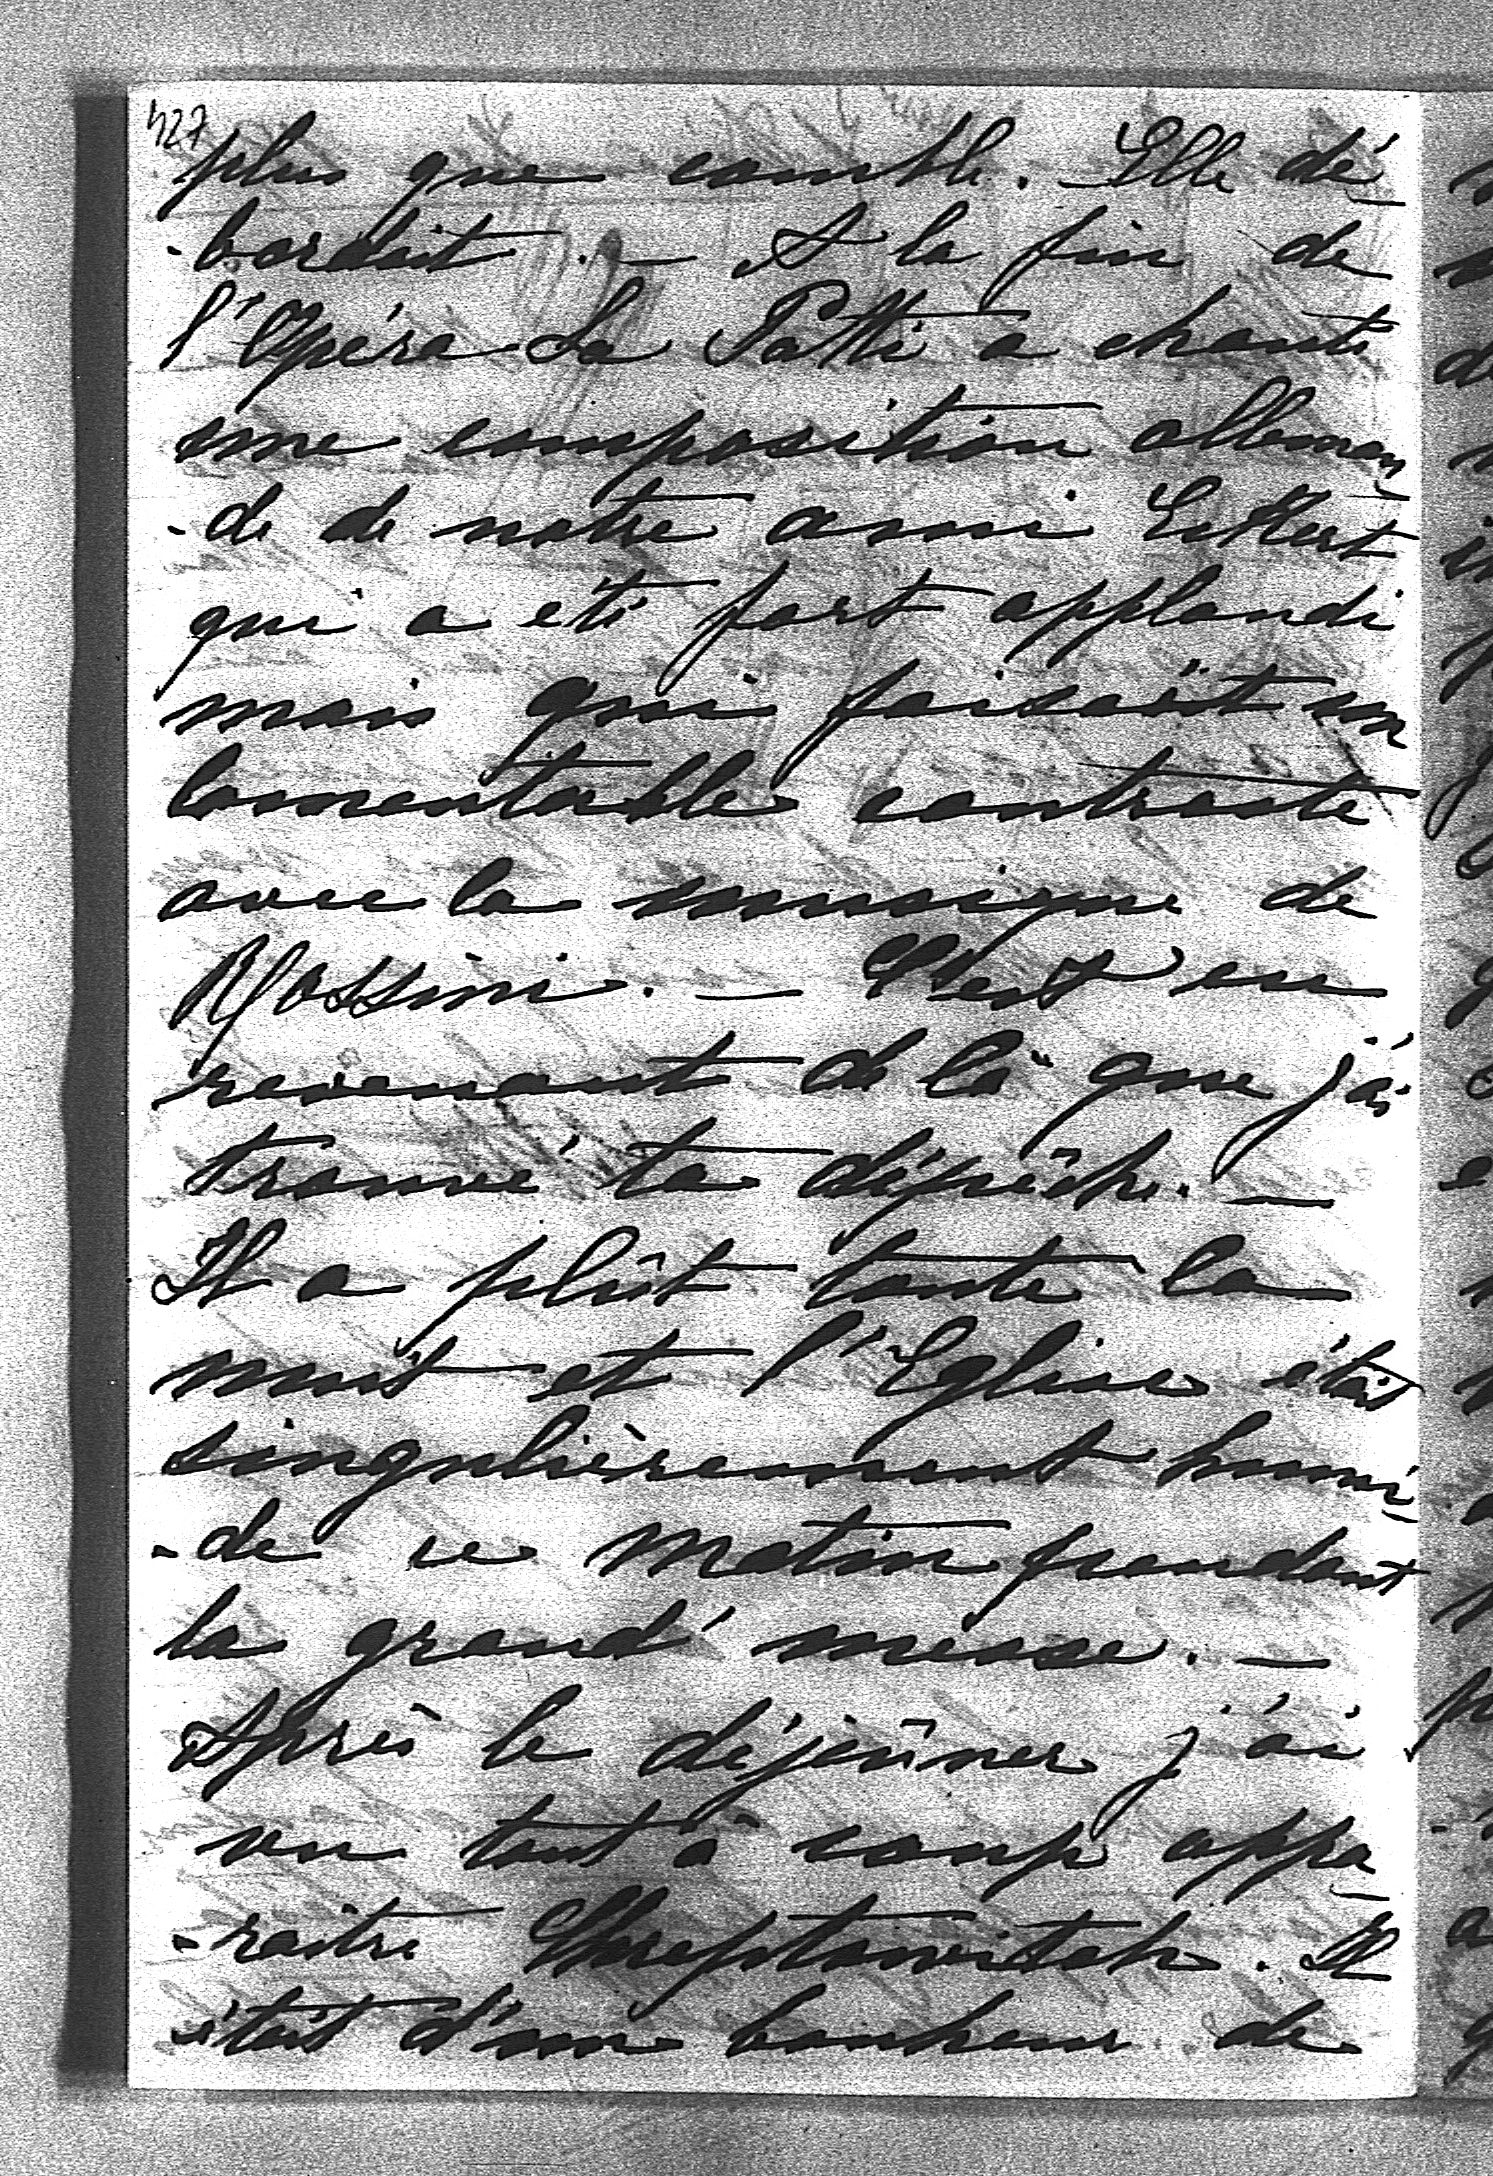 427
plus que comble. Elle dé-
-bordait. — A la fin de
l'Opéra La Patti a chanté
une composition alleman-
-de de notre ami Eckert
qui a été fort applaudi
mais qui faisait un
lamentable contraste
avec la musique de
Rossini. — C'est en
revenant de là que j'ai
trouvé ta dépêche. —
Il a plût toute la
nuit et l'Eglise était
singulièrement humi-
-de ce matin pendant
la grand' messe. —
Après le déjeûner j'ai
vu tout à coup appa-
-raitre Chreptowitch. Il
était d'un bonheur de